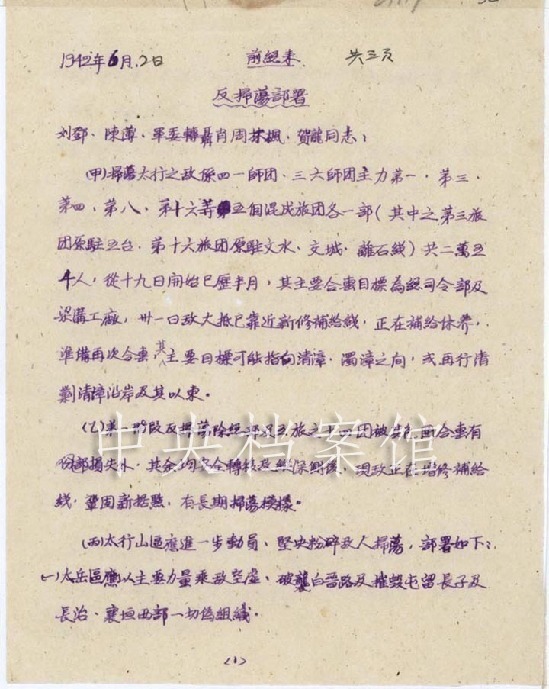 1942年6月2日　　前总来　　共三页
反掃蕩部署
刘鄧、陳薄、軍委轉聶肖周 楓、賀龍同志：
(甲)掃蕩太行之敌係四一師团、三六師团主力第一、第三、
第四、第八、第十六等五個混成旅团各一部（其中之第三旅
团原駐五台，第十六旅团原駐文水、交城、離石綫）共二萬五
千人，從十九日開始已歷半月，其主要合击目標為總司令部及
梁溝工廠，卅一日敌大抵已靠近新修補給綫，正在補給休养，
準備再次合击其主要目標可能指向清漳、濁漳之间，或再行清
剿清漳沿岸及其以東。
(乙)第一阶段反掃蕩除 旅 因被 合击有
部 损失外，其余均 合轉移及無 保 ，現敌正在增修補給
綫，鞏固新据點，有長期掃蕩模樣。
(丙)太行山區應進一步動員，堅决粉碎敌人掃蕩，部署如下：
(一)太岳區應以主要力量乘敌空虚，破襲白晋路及摧毁屯留長子及
長治、襄垣西部一切偽組織。
(1)
中央档案馆